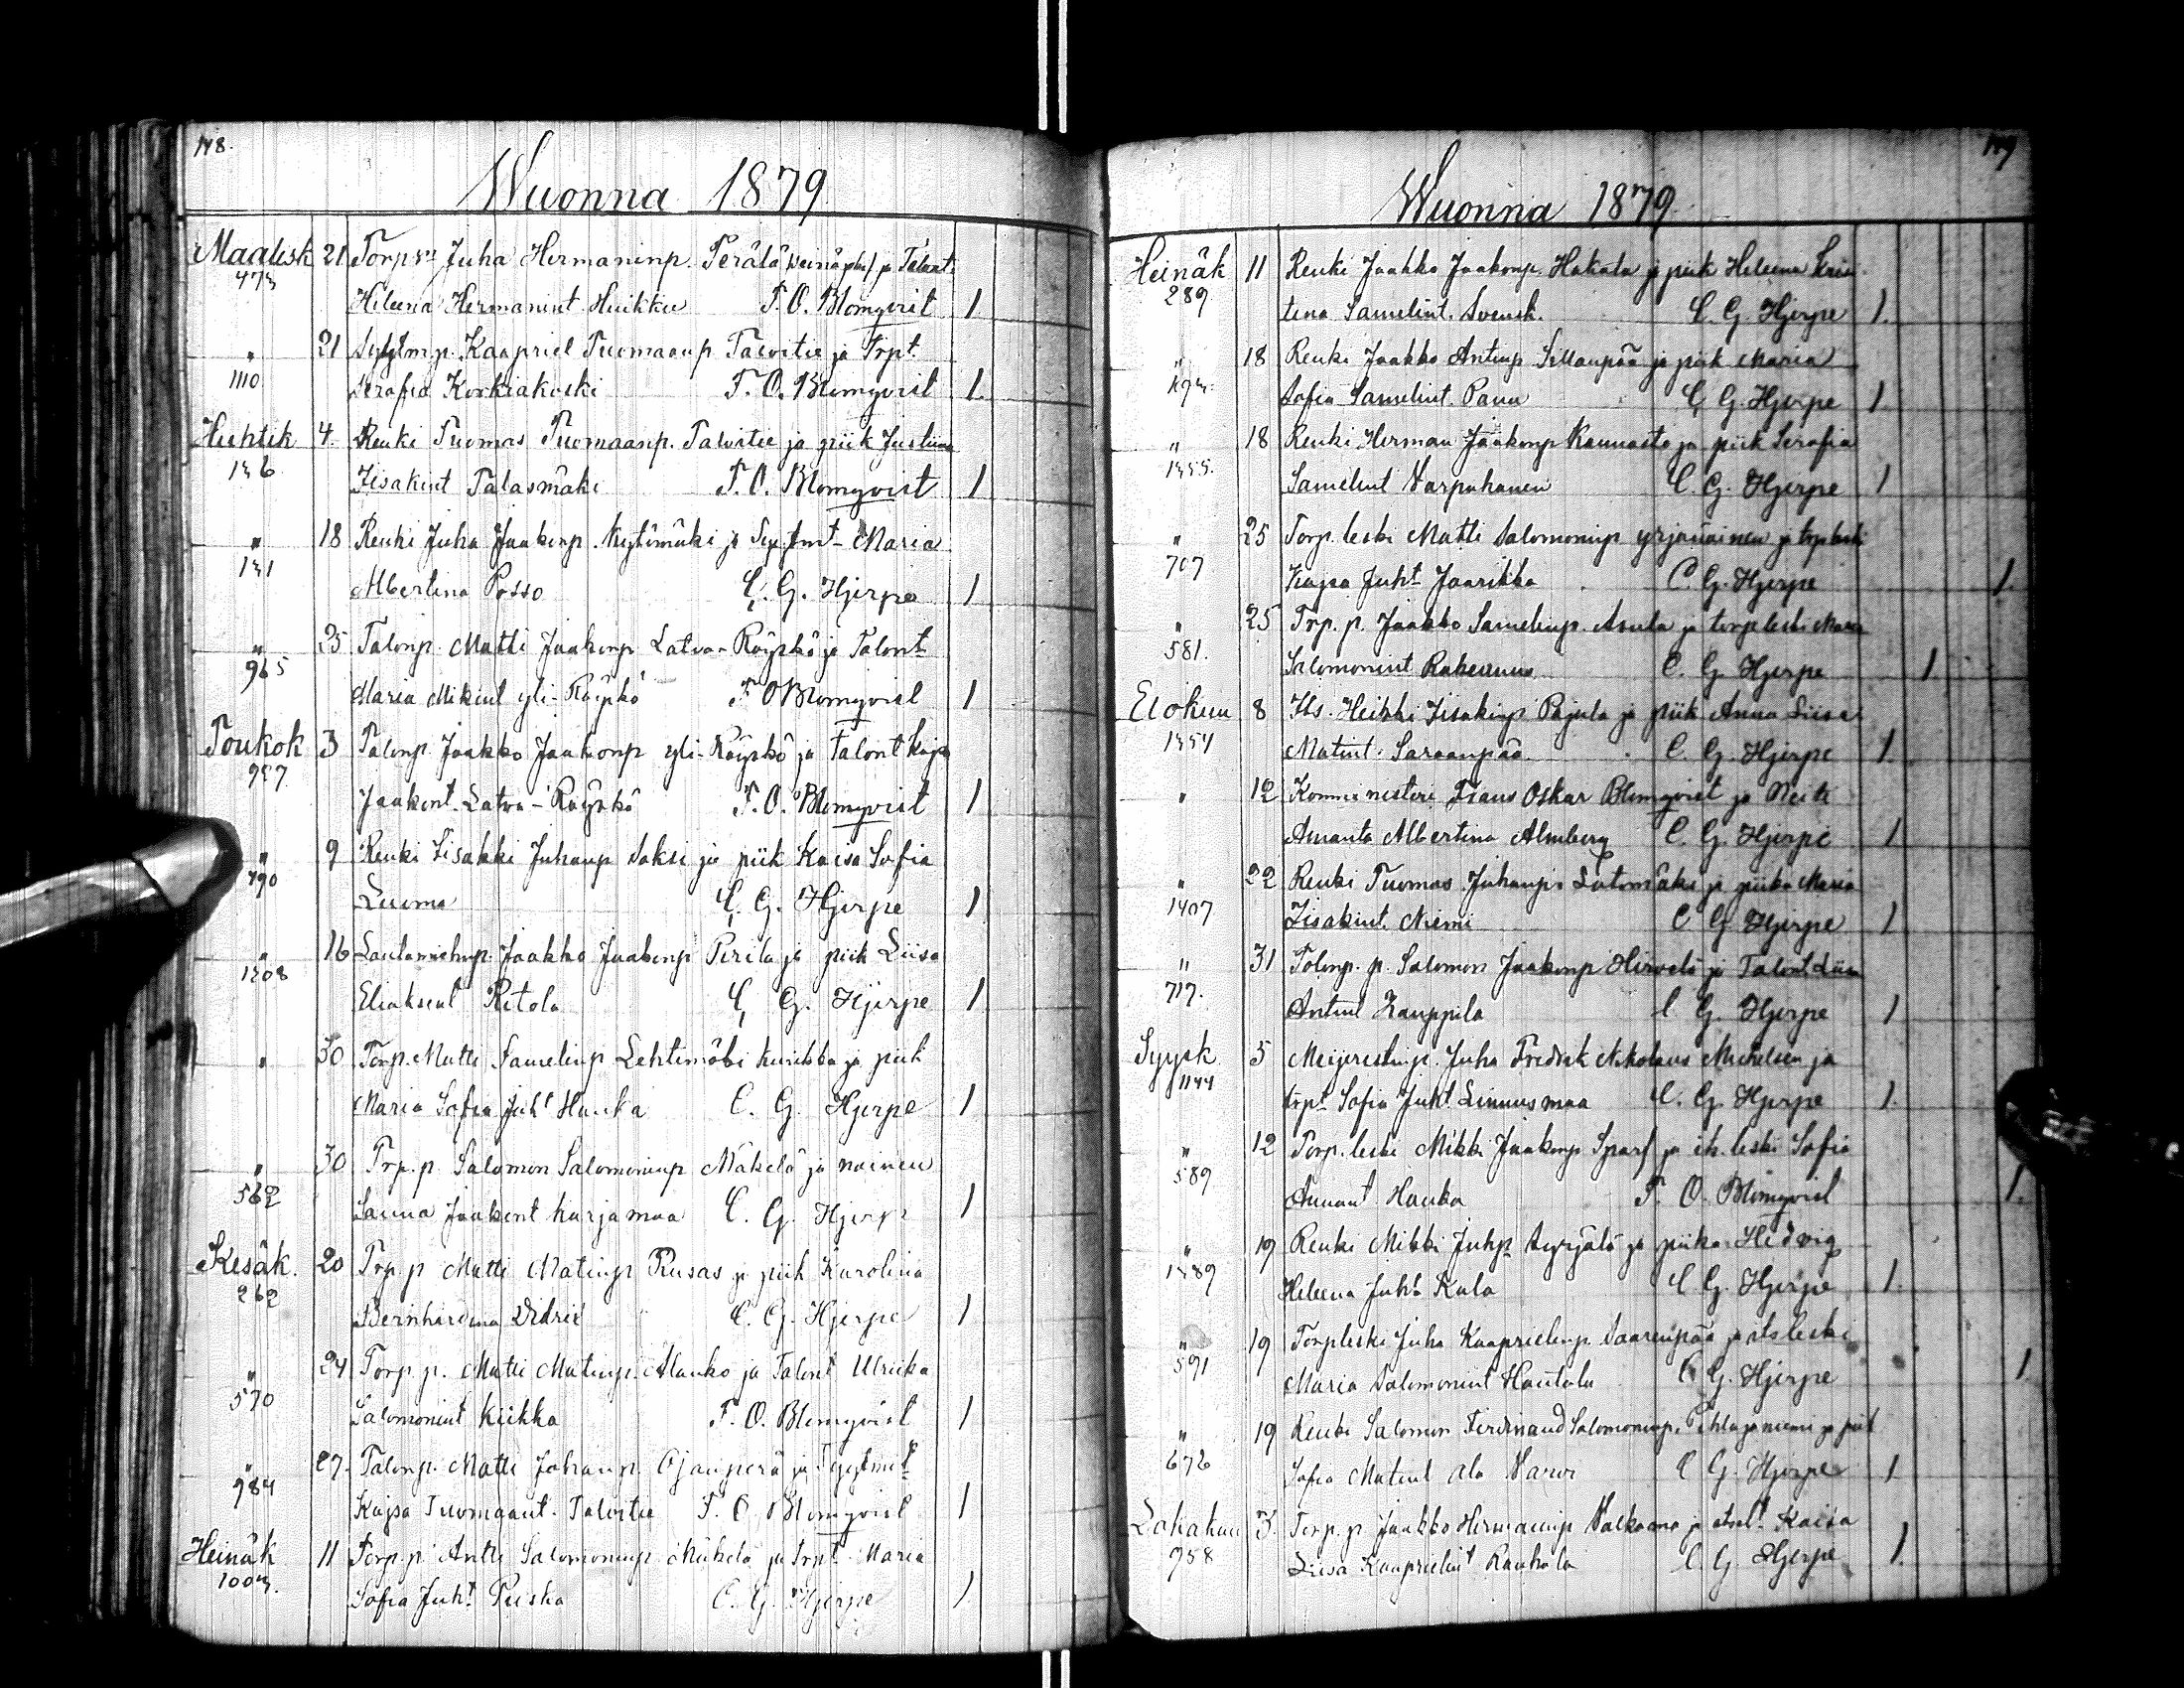 148.
Wuonna 1879
Maalisk 21 Torp. Juha Hermaninp. Perälä ja Talont.
Heleena Hermanint F. O. Blomqvist 1
" 21 Kaapriel Tuomaanp. Talvitie ja Trpt.
1110 Serafia Koskiakoski F. O. Blomqvist 1.
Huhtik 4. Renki Tuomas Tuomaanp. Talvitie ja piik Justiina
Iisakint Palasmäki F. O. Blomqvist 1
" 18 Renki Juha Jaakonp. Kytömäki ja Maria
Albertina Posso C. G. Hjerpe 1
" 25 Talonp. Matti Jaakonp Latva-Röyskö ja Talont
965 Maria Mikint yli-Röyskö F O Blomqvist 1
Toukok 3 Talonp. Jaakko Jaakonp yli-Röyskö ja Talont Kajsa
Jaakont. Latva-Röyskö F. O. Blomqvist 1
" 9 Renki Iisakki Juhanp Saksi ja piik Kaisa Sofia
790 Luoma C. G. Hjerpe 1
" 16 Lautamiehenp. Jaakko Jaakonp Perila ja piik Liisa
Eliaksent Ritola C. G. Hjerpe 1
" 30 Torp. Matti Samelinp Lehtimäki ja piik
Maria Sofia Juht Hauka C. G. Hjerpe 1
" 30 Trp. p. Salomon Salomoninp Mäkelä ja nainen
562 Sanna Jaakont Karjamaa C. G. Hjerpe 1
Kesäk. 20 Trp. p Matti Matinp Rusas ja piik Karolina
262 Bernhardina C. G. Hjerpe 1
" 24 Torp. p. Matti Matinp. Alanko ja Talont Ulriika
570 Salomonint Kiikka F. O. Blomqvist 1
" 27. Talonp. Matti Juhanp. Ojanperä ja
984 Kajsa Tuomaant. Talvitie F. O Blomqvist 1
Heinäk 11 Torp. p. Antti Salomoninp Mäkelä ja trpt Maria
Sofia Juht. Puska C. G. Hjerpe 1
149
Wuonna 1879
Heinäk 11 Renki Jaakko Jaakonp. Hakala ja piik Heleena Kris
289 tina Samelint. Svensk. C. G. Hjerpe 1.
" 18 Renki Jaakko Antinp Sillanpää ja piik Maria
Sofia Samelint. Panu C. G. Hjerpe 1
" 18 Renki Herman Jaakonp Kaunasto ja piik Serafia
Samelint Varpuhanen C. G. Hjerpe 1
" 25 Torp. leski Matti Salomoninp yrjänäinen ja trp leski
707 Kajsa Juht Jaarikka C. G. Hjerpe 1.
" 25 Trp. p. Jaakko Samelinp. Asula ja torp leski Maria
581. Salomonint C. G. Hjerpe 1.
Elokuu 8 Its. Heikki Iisakinp Pajula ja piik Anna Liisa
Matint. Saraanpää. C. G. Hjerpe 1.
" 12 Komministeri Frans Oskar Blomqvist ja Neiti
Amanta Albertina Almberg C. G. Hjerpe 1
" 22 Renki Tuomas Juhanp. Latomäki ja piika Maria
1407 Iisakint. Niemi C G Hjerpe 1
" 31 Talonp. p. Salomon Jaakonp Hirvelä ja Talont Liisa
717. Antint Kauppila C G. Hjerpe 1
Syysk 5 Meijeristinp. Juha Fredrik Nikolaus Michelsen ja
1144 trpt Sofia Juht. Linnusmaa C. G. Hjerpe 1.
" 12 Torp. leski Mikki Jaakonp Sparf ja its. leski Sofia
589 Hauka F. O. Blomqvist 1.
" 19 Renki Mikki Juhp. Syrjälä ja piika Hedvig
Heleena Juht Kula C G. Hjerpe 1.
" 19 Torp leski Juha Kaaprielinp Saarenpää ja its leski
591 Maria Salomonint Hautala C. G. Hjerpe 1
" 19 Renki Salomon Ferdinand Salomoninp. Pihlajaniemi ja piik
676 Sofia Matint Ala Varvi C G. Hjerpe 1
Lokakuu 3. Torp. p Jaakko Hermaninp Valkama ja Kaisa
958 Liisa Kaaprielint Rauhala C. G. Hjerpe 1.